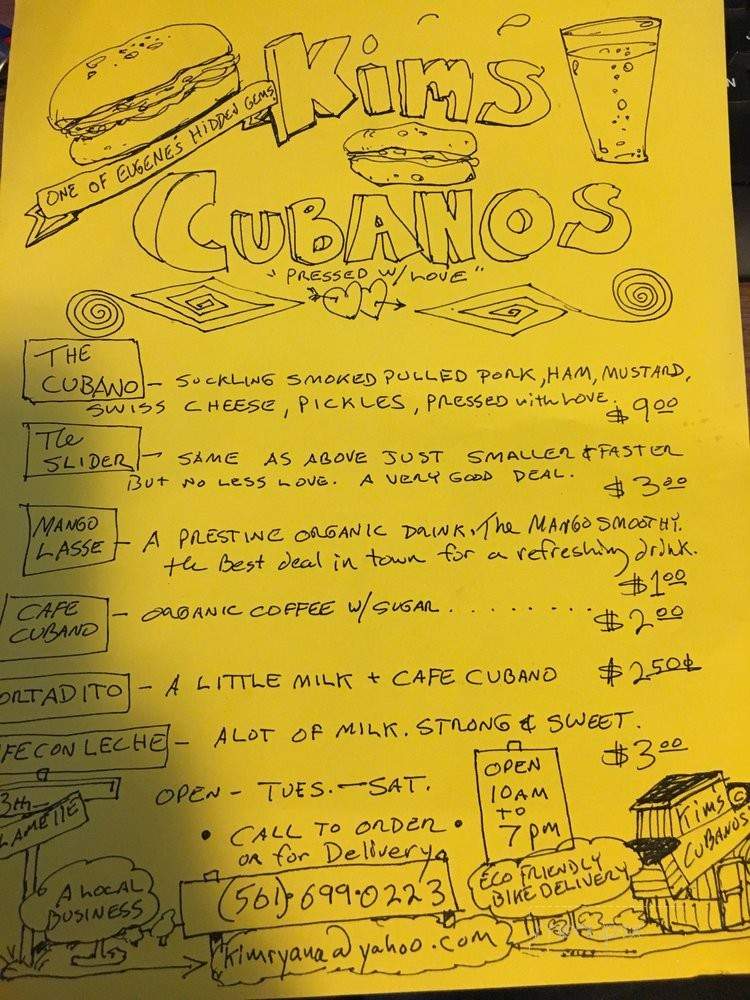 Kim's
ONE OF EUGENE'S HIDDEN GEMS
CUBANOS
"PRESSED W/LOVE"
THE CUBANO - SUCKLING SMOKED PULLED PORK, HAM, MUSTARD,
SWISS CHEESE, PICKLES, PRESSED with LOVE. $9.00
The SLIDER - SAME AS ABOVE JUST SMALLER & FASTER
BUT NO LESS LOVE. A VERY GOOD DEAL. $3.00
MANGO LASSE - A PRESTINE ORGANIC DRINK. The MANGO SMOOTHY.
the Best deal in town for a refreshing drink.
$1.00
CAFE CUBANO - ORGANIC COFFEE W/SUGAR ........ $2.00
ORTADITO - A LITTLE MILK + CAFE CUBANO $2.50¢
FE CON LECHE - ALOT OF MILK. STRONG & SWEET.
$3.00
OPEN - TUES. - SAT.
OPEN
10AM
to
7pm
• CALL TO ORDER •
or for Delivery
(561)•699•0223
kimryana@yahoo.com
3th
LAMETTE
A LOCAL
BUSINESS
ECO FRIENDLY
BIKE DELIVERY
Kim's
CUBANOS